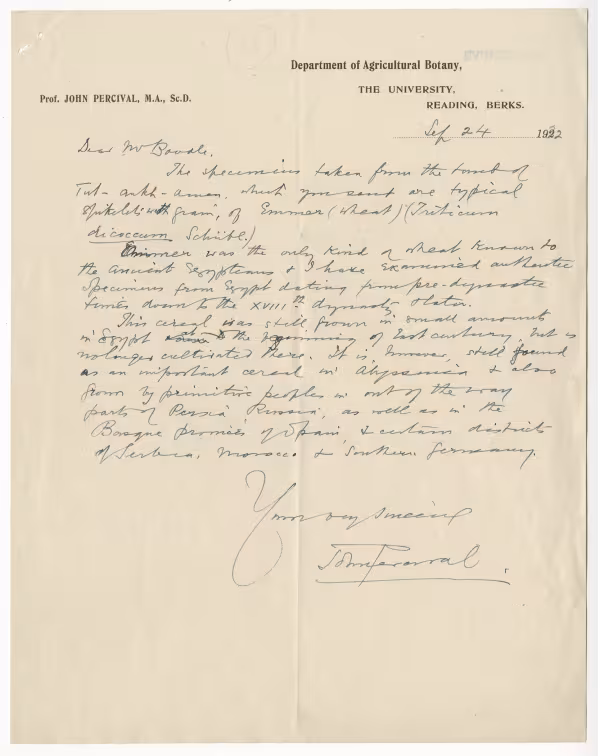 Department of Agricultural Botany,
THE UNIVERSITY,
READING, BERKS.
Prof. JOHN PERCIVAL, M.A., Sc.D.
Sep 24 1922
Dear Mr Boodle,
The specimens taken from the tomb of
Tut-ankh-amen which you sent are typical
spikelets with grain, of Emmer (wheat) (Triticum
dicoccum Schübl.)
Emmer was the only kind of wheat known to
the ancient Egyptians & I have examined authentic
specimens from Egypt dating from pre-dynastic
times down to the XVIIIth dynasty & later.
This cereal was still grown in small amounts
in Egypt the beginning of last century, but is
no longer cultivated there. It is, however, still found
as an important cereal in Abyssinia & also
grown by primitive peoples in out of the way
parts of Persia Russia, as well as in the
Basque provinces of Spain, & certain districts
of Serbia, Morocco & Southern Germany.
Yours very sincerely
John Percival